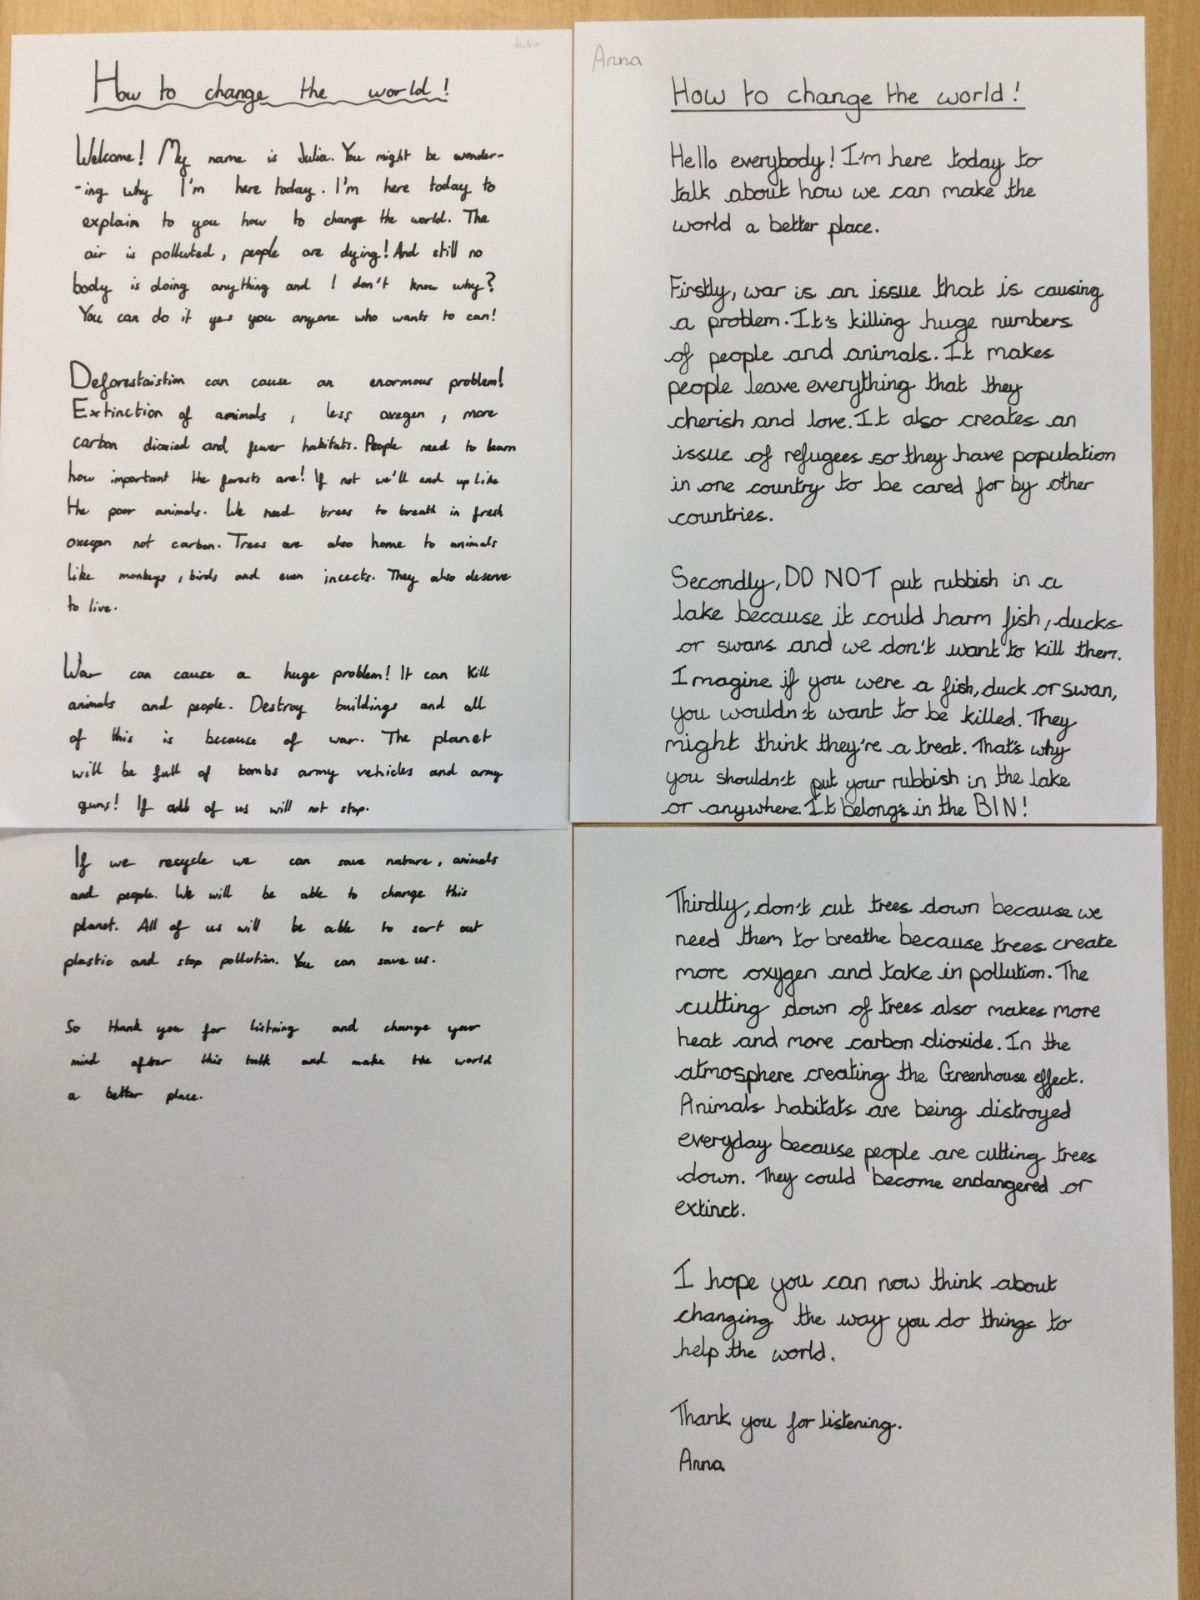 Julia
How to change the world!
Welcome! My name is Julia. You might be wonder-
-ing why I'm here today. I'm here today to
explain to you how to change the world. The
air is polluted, people are dying! And still no
body is doing anything and I don't know why?
You can do it yes you anyone who wants to can!
Deforestaistion can cause an enormous problem!
Extinction of animals, less oxegen, more
carbon dioxied and fewer habitats. People need to learn
how important the forests are! If not we'll end up like
the poor animals. We need trees to breath in fresh
oxegen not carbon. Trees are also home to animals
like monkeys, birds and even incects. They also deserve
to live.
War can cause a huge problem! It can kill
animals and people. Destroy buildings and all
of this is because of war. The planet
will be full of bombs army vehicles and army
guns! If all of us will not stop.
If we recycle we can save nature, animals
and people. We will be able to change this
planet. All of us will be able to sort out
plastic and stop pollution. You can save us.
So thank you for listning and change your
mind after this talk and make the world
a better place.
Anna
How to change the world!
Hello everybody! I'm here today to
talk about how we can make the
world a better place.
Firstly, war is an issue that is causing
a problem. It's killing huge numbers
of people and animals. It makes
people leave everything that they
cherish and love. It also creates an
issue of refugees so they have population
in one country to be cared for by other
countries.
Secondly, DO NOT put rubbish in a
lake because it could harm fish, ducks
or swans and we don't want to kill them.
Imagine if you were a fish, duck or swan,
you wouldn't want to be killed. They
might think they're a treat. That's why
you shouldn't put your rubbish in the lake
or anywhere. It belongs in the BIN!
Thirdly, don't cut trees down because we
need them to breathe because trees create
more oxygen and take in pollution. The
cutting down of trees also makes more
heat and more carbon dioxide. In the
atmosphere creating the Greenhouse effect.
Animals habitats are being distroyed
everyday because people are cutting trees
down. They could become endangered or
extinct.
I hope you can now think about
changing the way you do things to
help the world.
Thank you for listening.
Anna